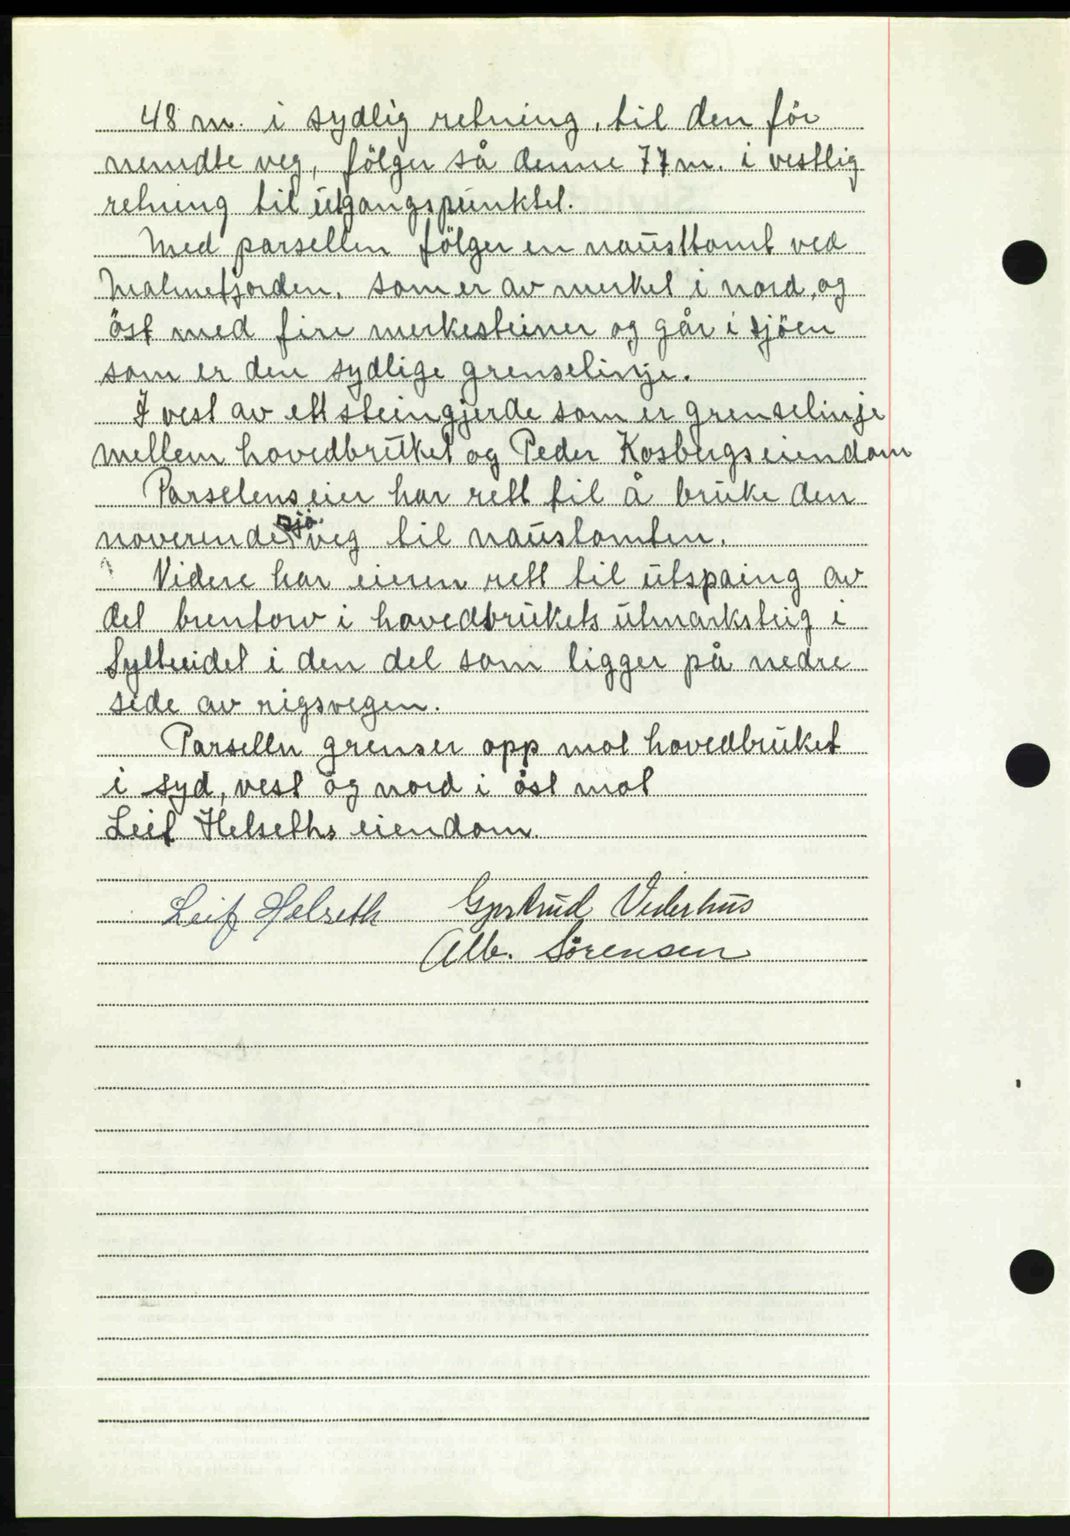 48 m. i sydlig retning, til den för
nemdte veg, fölger så denne 77 m. i vestlig
retning til utgangspunktet.
Med parsellen fölger en nausttomt ved
Malmefjorden. som er av merket i nord, og
öst med fire merkesteiner og går i sjöen
som er den sydlige grenselinje.
I vest av ett steingjerde som er grenselinje
mellem hovedbruket og Peder Kosbergs eiendom
Parselens eier har rett til å bruke den
noverende sjö veg til naustomten.
Videre har eieren rett til utspaing av
det brentorv i hovedbrukets utmarksteig i
Sylteeidet i den del som ligger på nedre
side av rigsvegen.
Parsellen grenser opp mot hovedbruket
i syd, vest og nord i öst mot
Leif Helseths eiendom.
Leif Helseth Gjertrud Viderhus
Alb. Sörensen